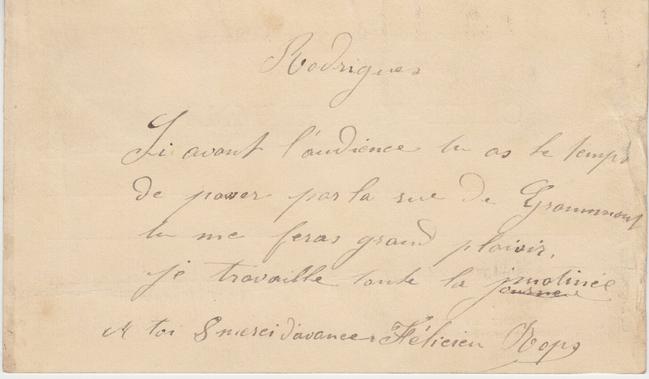 Rodrigues
Si avant l'audience tu as le temps
de passer par la rue de Grammont
tu me feras grand plaisir,
je travaille toute la journée matinée
A toi & merci d'avance Félicien Rops